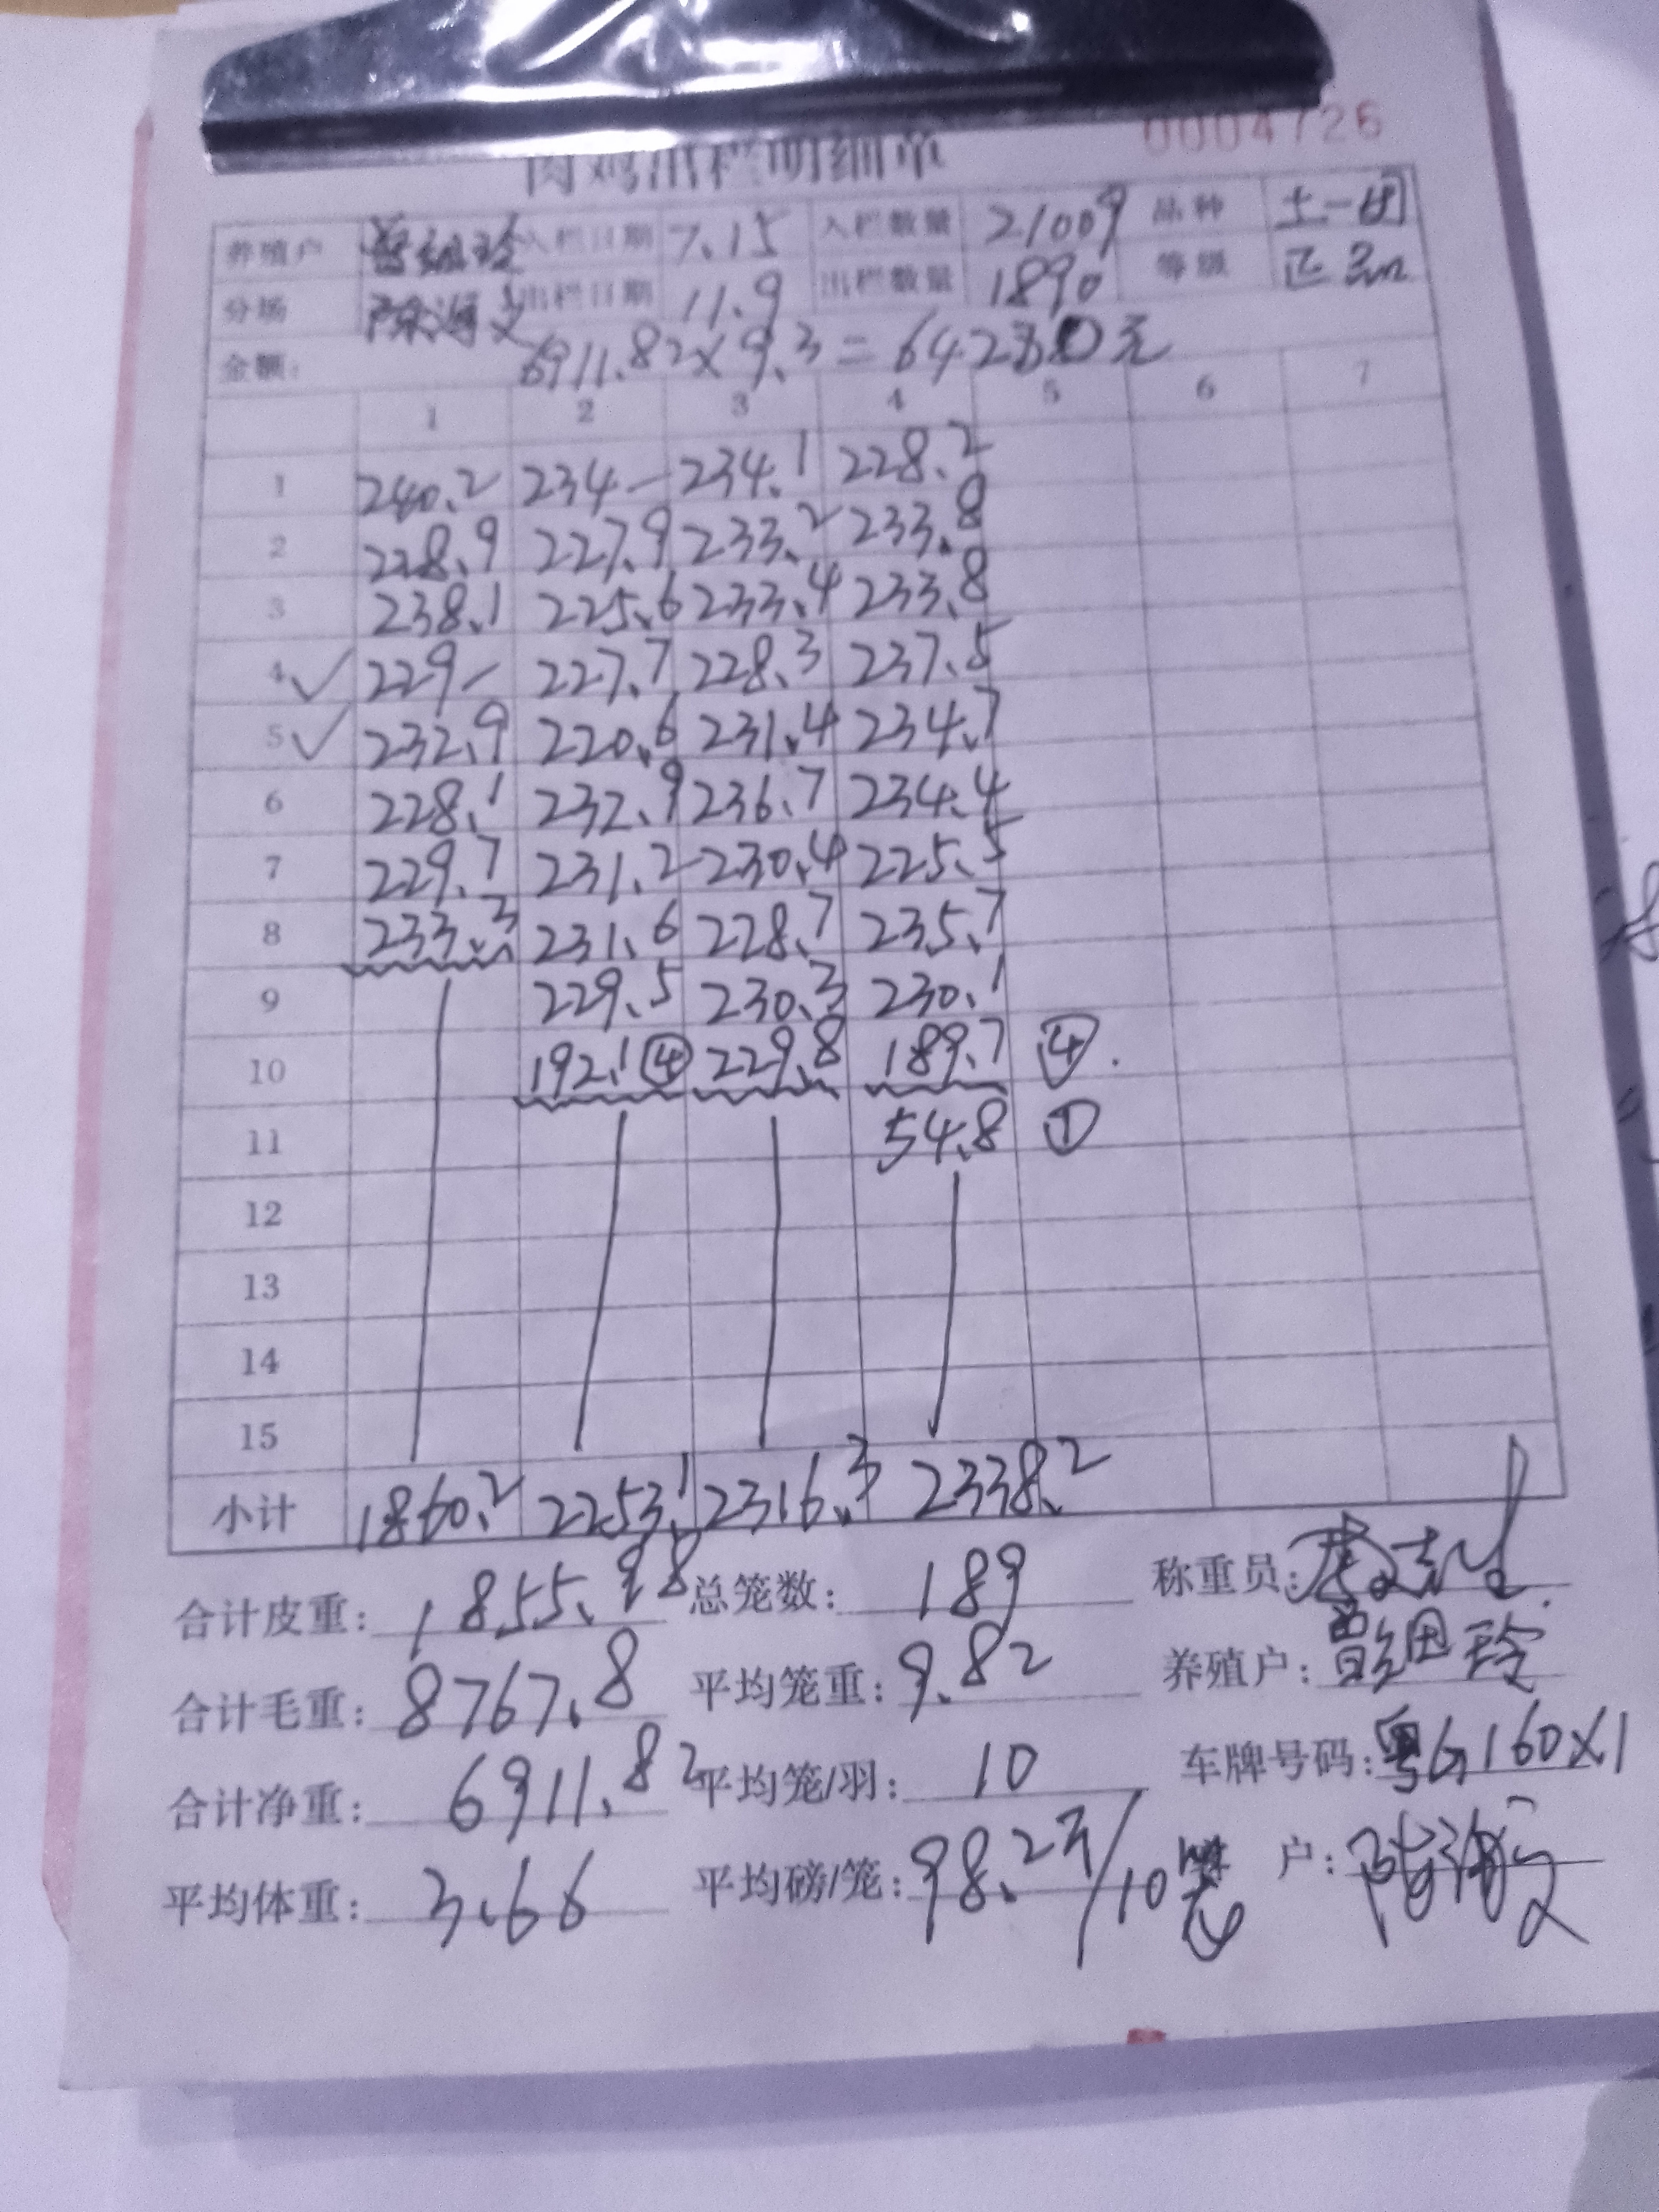 肉鸡出栏明细单 0004726
养殖户 曾细玲 入栏日期 7.15 入栏数量 21009 品种 土一
分场 陈海文 出栏日期 11.9 出栏数量 1890 等级 正
金额: 6911.82×9.3=64280元
1 2 3 4 5 6 7
1 240.2 234- 234.1 228.2
2 228.9 227.9 233.2 233.8
3 238.1 225.6 233.4 233.8
4 ✓ 229- 227.7 228.3 237.5
5 ✓ 232.9 220.6 231.4 234.7
6 228.1 232.9 236.7 234.4
7 229.7 231.2 230.4 225.5
8 233.3 231.6 228.7 235.7
9 229.5 230.3 230.1
10 192.1 ④ 229.8 189.7 ④.
11 54.8 ①
12
13
14
15
小计 1860.2 2253.1 2316.3 2338.2
合计皮重: 1855.98 总笼数: 189 称重员:
合计毛重: 8767.8 平均笼重: 9.82 养殖户: 曾细玲
合计净重: 6911.82 平均笼/羽: 10 车牌号码: 粤G160X1
平均体重: 3.66 平均磅/笼: 98.2斤/10笼 户: 陈海文